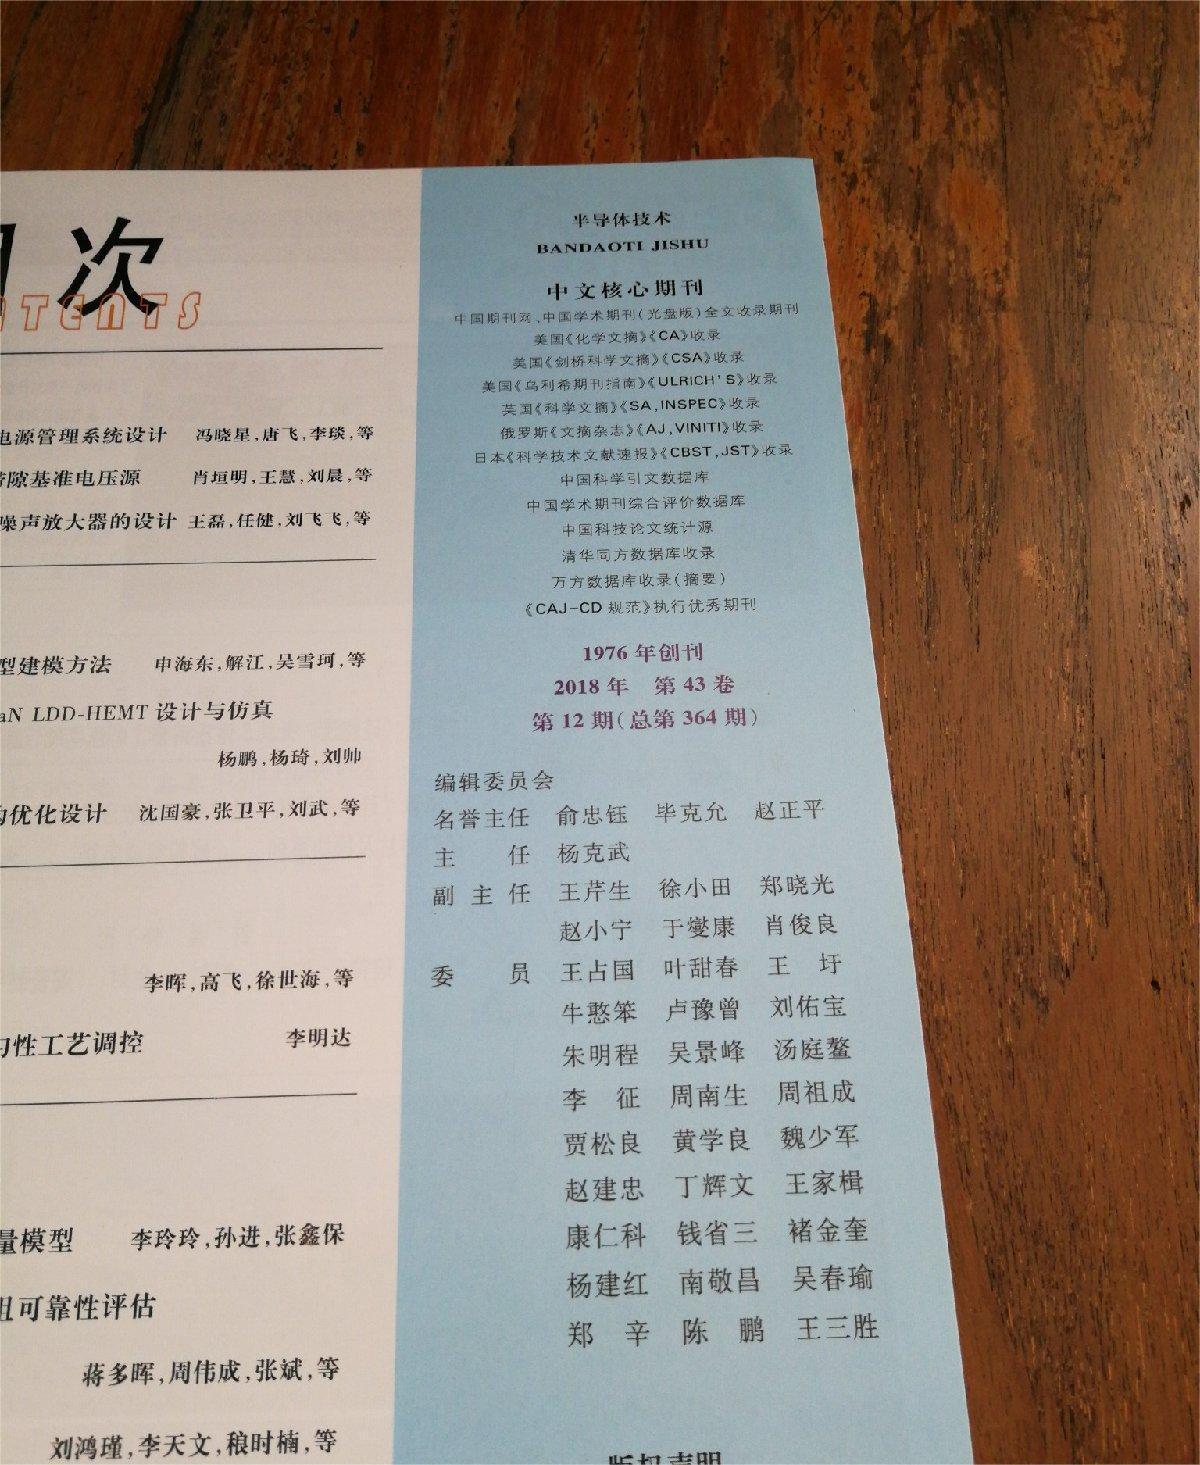 次
电源管理系统设计 冯晓星,唐飞,李琰,等
隙基准电压源 肖垣明,王慧,刘晨,等
噪声放大器的设计 王磊,任健,刘飞飞,等
型建模方法 申海东,解江,吴雪珂,等
aN LDD-HEMT 设计与仿真
杨鹏,杨琦,刘帅
优化设计 沈国豪,张卫平,刘武,等
李晖,高飞,徐世海,等
匀性工艺调控 李明达
量模型 李玲玲,孙进,张鑫保
可靠性评估
蒋多晖,周伟成,张斌,等
刘鸿瑾,李天文,稂时楠,等
半导体技术
BANDAOTI JISHU
中文核心期刊
中国期刊网、中国学术期刊(光盘版)全文收录期刊
美国《化学文摘》《CA》收录
美国《剑桥科学文摘》《CSA》收录
美国《乌利希期刊指南》《ULRICH'S》收录
英国《科学文摘》《SA,INSPEC》收录
俄罗斯《文摘杂志》《AJ,VINITI》收录
日本《科学技术文献速报》《CBST,JST》收录
中国科学引文数据库
中国学术期刊综合评价数据库
中国科技论文统计源
清华同方数据库收录
万方数据库收录(摘要)
《CAJ-CD 规范》执行优秀期刊
1976 年创刊
2018 年 第 43 卷
第 12 期(总第 364 期)
编辑委员会
名誉主任 俞忠钰 毕克允 赵正平
主 任 杨克武
副 主 任 王芹生 徐小田 郑晓光
赵小宁 于燮康 肖俊良
委 员 王占国 叶甜春 王 圩
牛憨笨 卢豫曾 刘佑宝
朱明程 吴景峰 汤庭鳌
李 征 周南生 周祖成
贾松良 黄学良 魏少军
赵建忠 丁辉文 王家楫
康仁科 钱省三 褚金奎
杨建红 南敬昌 吴春瑜
郑 辛 陈 鹏 王三胜
版权声明